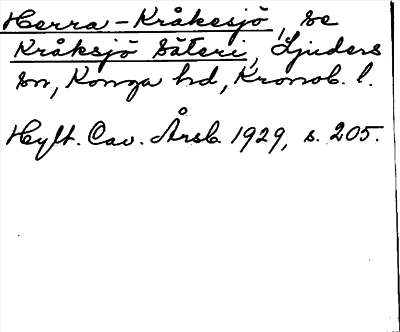 Herra-Kråkesjö, se
Kråksjö Säteri, Ljuders
sn, Konga hd, Kronob. l.
Hylt. Cav. Årsb. 1929, s. 205.